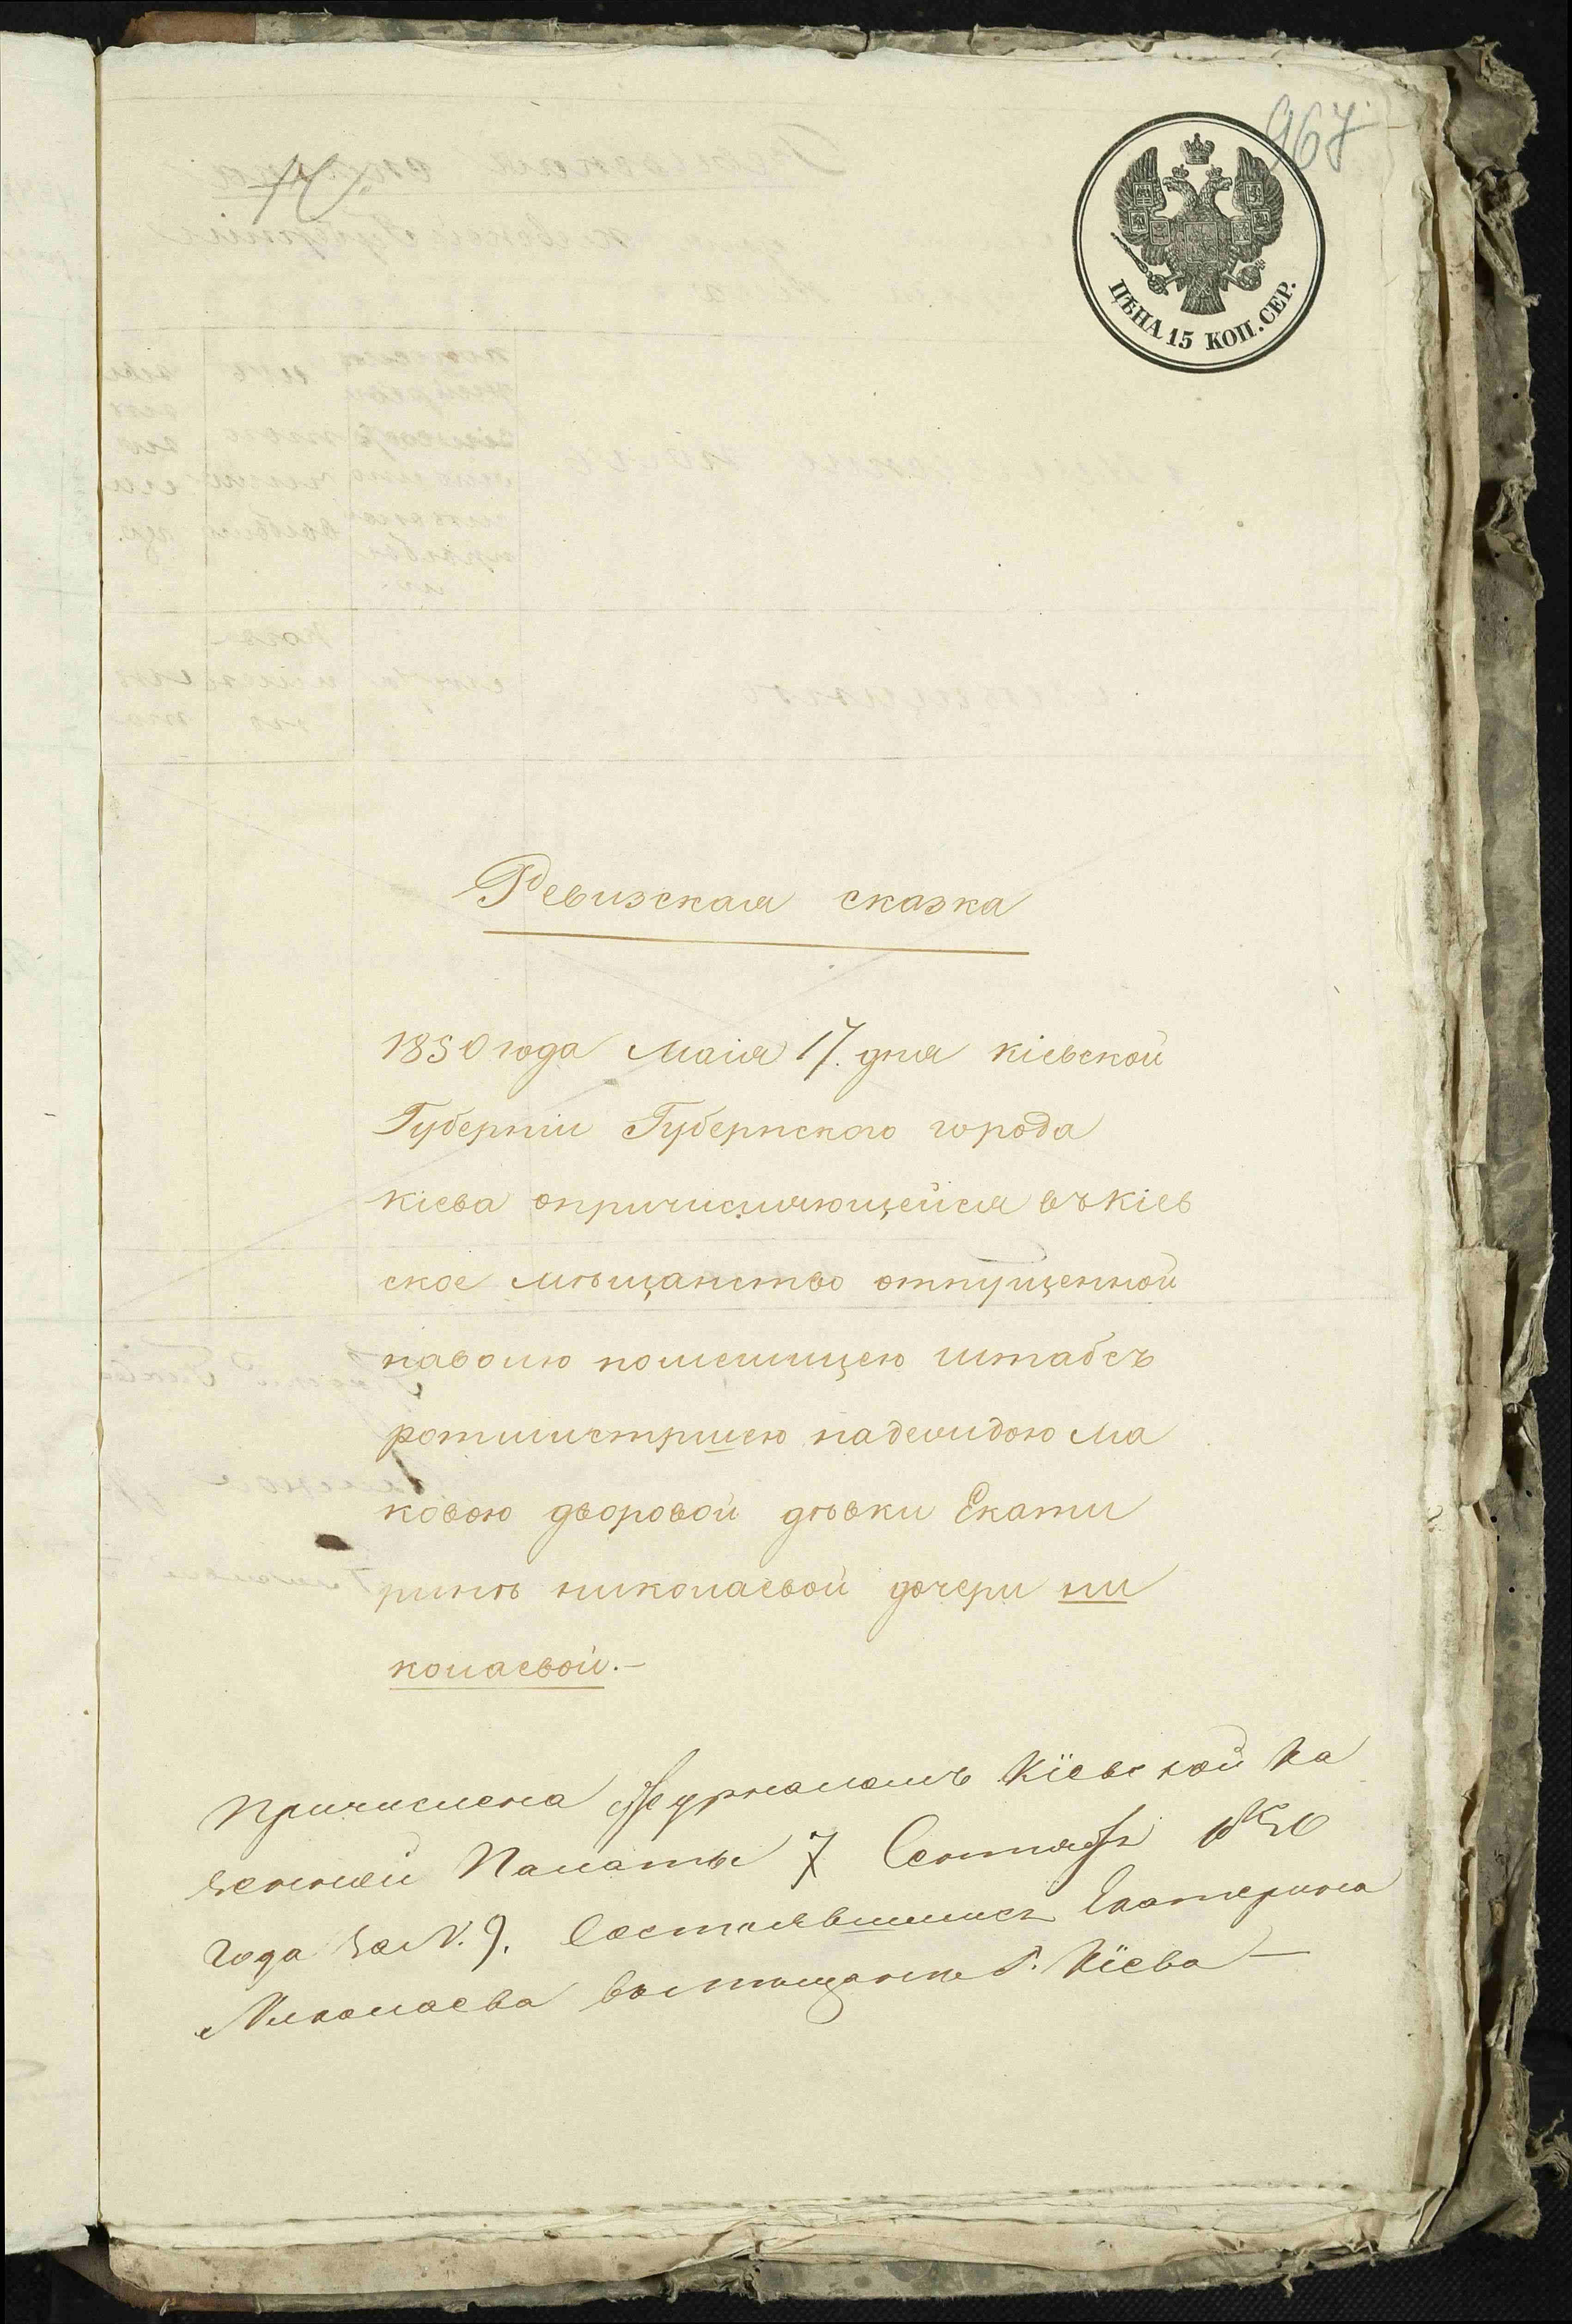 967
ЦѢНА 15 КОП. СЕР.
Ревизская сказка
1850 года Маія 17. дня кіевской
Губерніи Губернского города
кіева опричисляющейся въ кіев
ское мѣщанство отпущенной
наволю помещицею штабсъ
ротмистршею надеждою Ма
ковою дворовой дѣвки Екати
ринѣ николаевой дочери ни
колаевой.-
Причислена Журналомъ Кіевской Ка
зенной Палаты 7 Сентября 1850
года за N. 9. Состоявшимся Екатерина
Николаева въ мѣщанки г. Кіева —